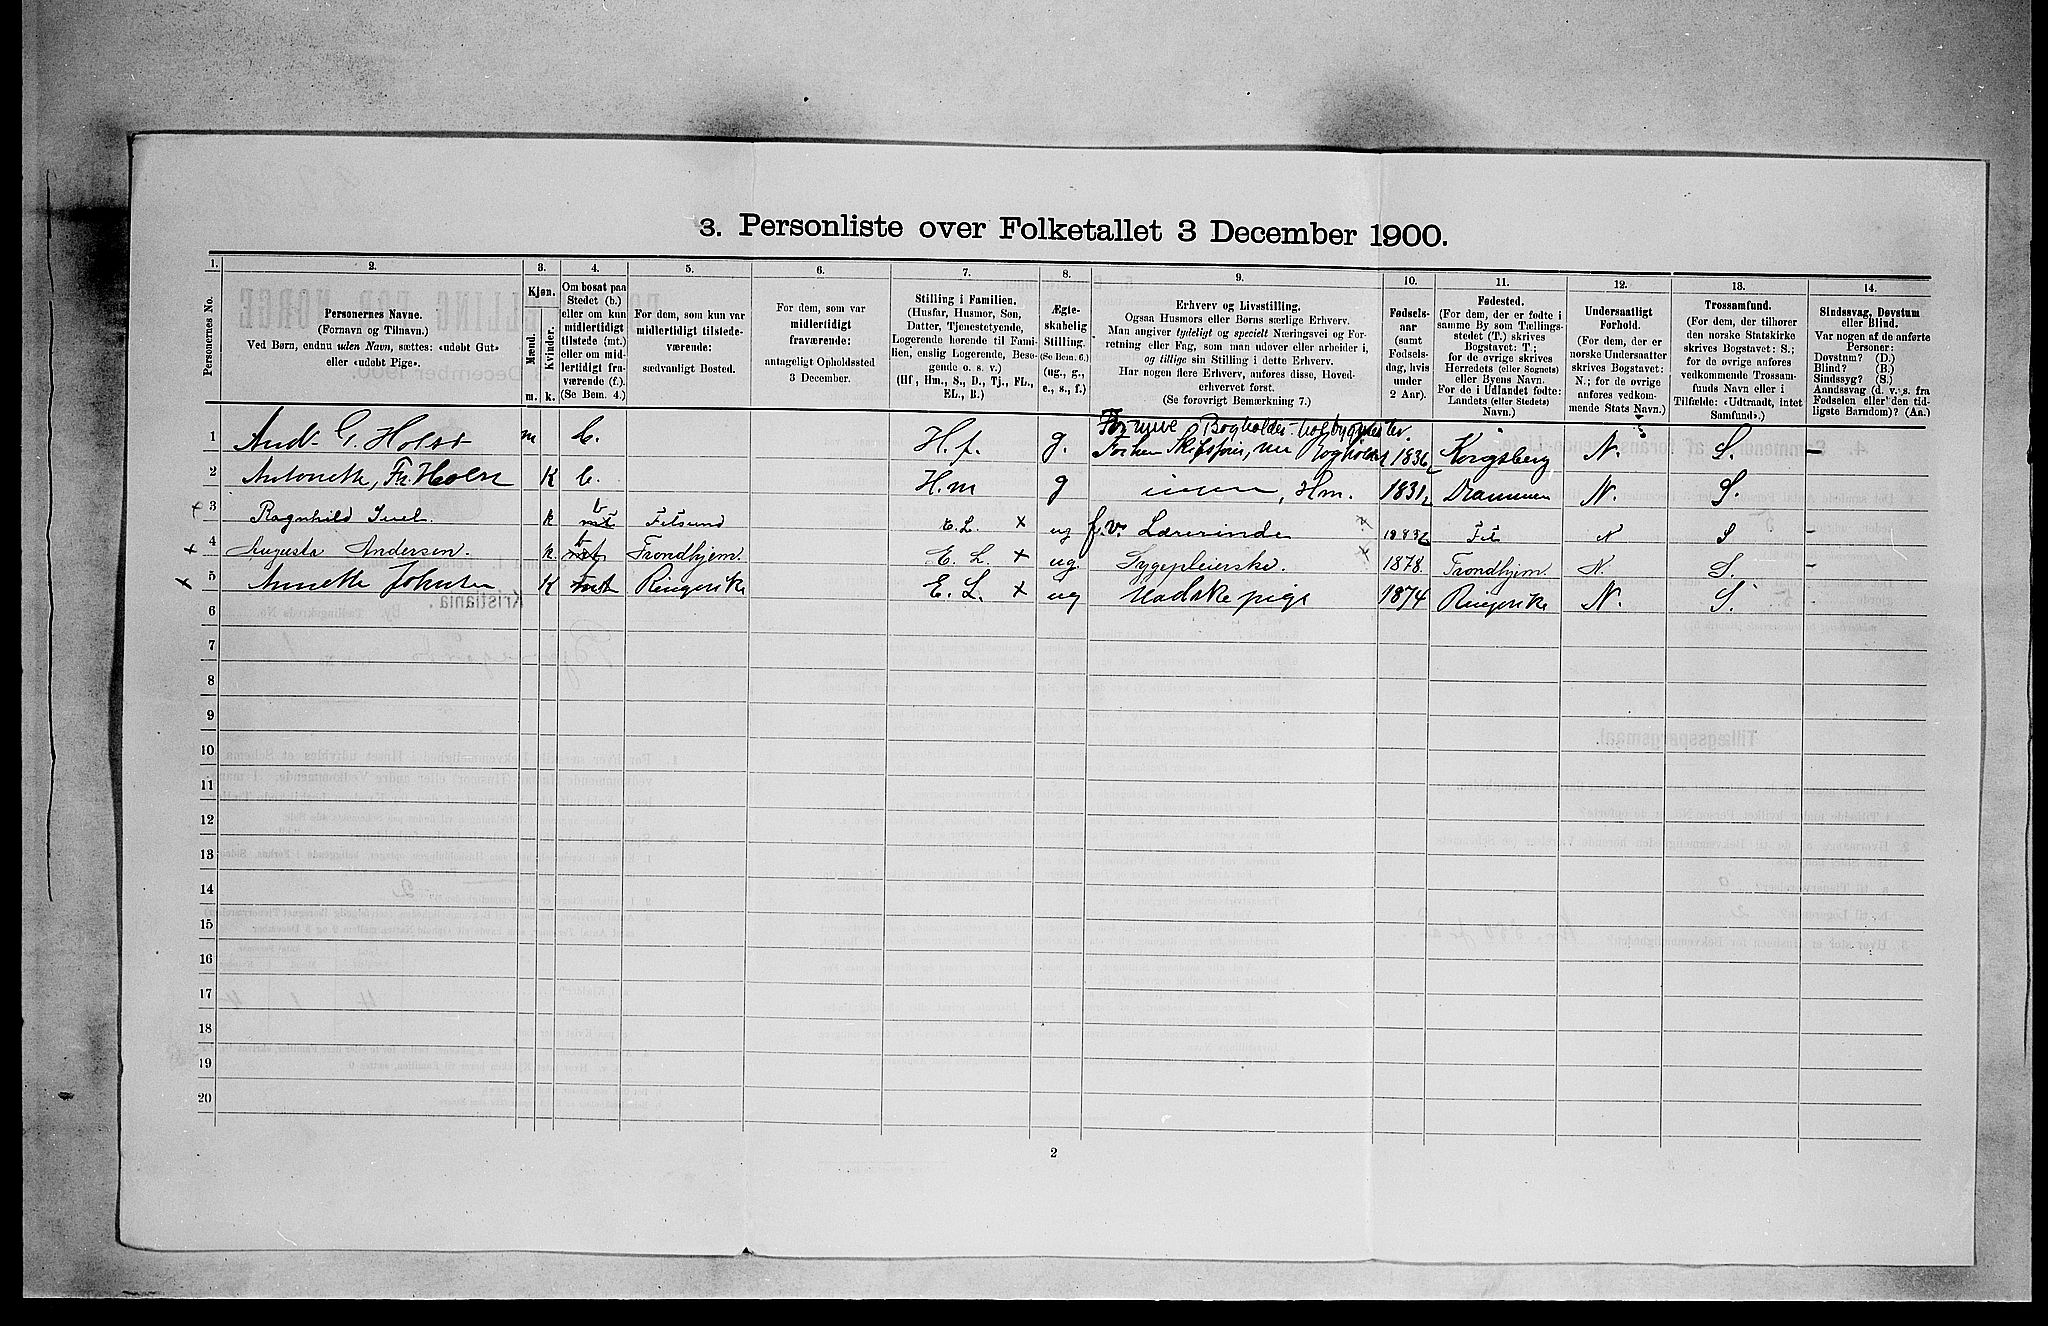 3. Personliste over Folketallet 3 December 1900.
1. 2. 3. 4. 5. 6. 7. 8. 9. 10. 11. 12. 13. 14.
Personernes No.
Personernes Navne.
(Fornavn og Tilnavn.)
Ved Børn, endnu uden Navn, sættes: «udøbt Gut»
eller «udøbt Pige».
Kjøn.
Mænd. Kvinder.
m. k.
Om bosat paa
Stedet (b.)
eller om kun
midlertidigt
tilstede (mt.)
eller om mid-
lertidigt fra-
værende (f.).
(Se Bem. 4.)
For dem, som kun var
midlertidigt tilstede-
værende:
sædvanligt Bosted.
For dem, som var
midlertidigt
fraværende:
antageligt Opholdssted
3 December.
Stilling i Familien.
(Husfar, Husmor, Søn,
Datter, Tjenestetyende,
Logerende hørende til Fami-
lien, enslig Logerende, Besø-
gende o. s. v.)
(Hf., Hm., S., D., Tj., FL.,
EL., B.)
Ægte-
skabelig
Stilling.
(Se Bem. 6.)
(ug., g.,
e., s., f.)
Erhverv og Livsstilling.
Ogsaa Husmors eller Børns særlige Erhverv.
Man angiver tydeligt og specielt Næringsvei og For-
retning eller Fag, som man udøver eller arbeider i,
og tillige sin Stilling i dette Erhverv.
Har nogen flere Erhverv, anføres disse, Hoved-
erhvervet først.
(Se forøvrigt Bemærkning 7.)
Fødsels-
aar
(samt
Fødsels-
dag, hvis
under
2 Aar).
Fødested.
(For dem, der er fødte i
samme By som Tællings-
stedet (T.) skrives
Bogstavet: T.;
for de øvrige skrives
Herredets (eller Sognets)
eller Byens Navn.
For de i Udlandet fødte:
Landets (eller Stedets)
Navn.)
Undersaatligt
Forhold.
(For dem, der er
norske Undersaatter
skrives Bogstavet:
N.; for de øvrige
anføres vedkom-
mende Stats Navn.)
Trossamfund.
(For dem, der tilhører
den norske Statskirke
skrives Bogstavet: S.;
for de øvrige anføres
vedkommende Trossam-
funds Navn eller i
Tilfælde: «Udtraadt, intet
Samfund».)
Sindssvag, Døvstum
eller Blind.
Var nogen af de anførte
Personer:
Døvstum? (D.)
Blind? (B.)
Sindssyg? (S.)
Aandssvag (d. v. s. fra
Fødselen eller den tid-
ligste Barndom)? (Aa.)
1 And. G. Holst m b. H.f. g. Forhen Skibsfører, nu Bogholder 1836 Kongsberg N. S. –
2 Antonette, Fr. Holst K b. H.m g Hm. 1831 Drammen N. S.
3 Ragnhild Juel. k b mt Fetsund E. L. x ug f.v. Lærerinde 1883 Fet N S –
4 Augusta Andersen. k. b mt Trondhjem. E. L. x ug. Sygepleierske. 1878. Trondhjem. N. S. –
5 Annette Johnsen K mt Ringerike E. L. x ug Vadskepige 1874 Ringerike N. S. –
6
7
8
9
10
11
12
13
14
15
16
17
18
19
20
2